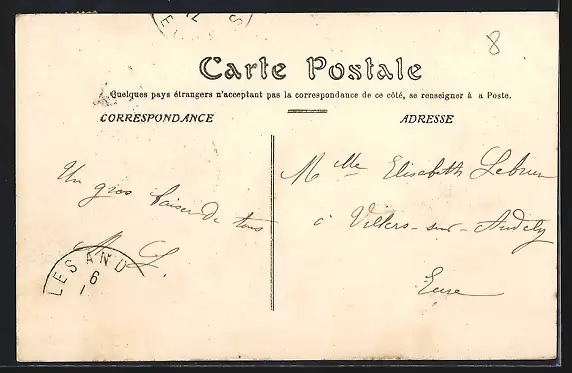 8
Carte Postale
Quelques pays étrangers n'acceptent pas la correspondance de ce côté, se renseigner à a Poste.
CORRESPONDANCE
ADRESSE
Un gros
baiser de tous
M. L.
Mlle Elisabeth Lebrun
à Villers-sur-Andely
Eure
LES AND
6